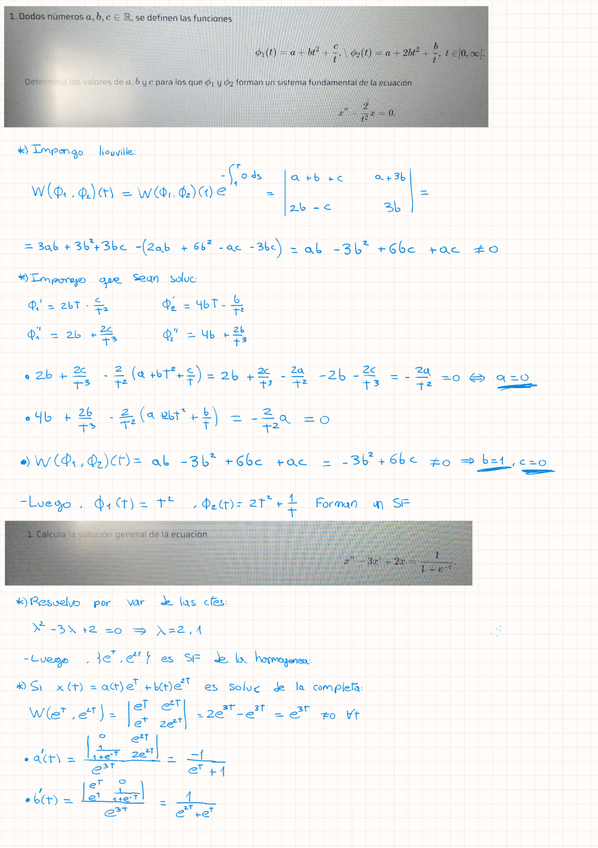 1. Dados números a, b, c ∈ ℝ, se definen las funciones
ϕ₁(t) = a + bt² + c/t, \ ϕ₂(t) = a + 2bt² + b/t, t ∈]0,∞[.
Determina los valores de a, b y c para los que ϕ₁ y ϕ₂ forman un sistema fundamental de la ecuación
x'' − 2/t² x = 0.
*) Impongo liouville:
W(ϕ₁,ϕ₂)(t) = W(ϕ₁,ϕ₂)(1) e^(-∫₁ᵗ 0 ds) = |a+b+c a+3b; 2b-c 3b| =
= 3ab + 3b² + 3bc - (2ab + 6b² - ac - 3bc) = ab - 3b² + 6bc + ac ≠ 0
*) Impongo que sean soluc:
ϕ₁' = 2bt - c/t² ϕ₂' = 4bt - b/t²
ϕ₁'' = 2b + 2c/t³ ϕ₂'' = 4b + 2b/t³
• 2b + 2c/t³ - 2/t² (a + bt² + c/t) = 2b + 2c/t³ - 2a/t² - 2b - 2c/t³ = - 2a/t² = 0 ⇔ a=0
• 4b + 2b/t³ - 2/t² (a 2bt² + b/t) = - 2/t² a = 0
•) W(ϕ₁,ϕ₂)(t) = ab - 3b² + 6bc + ac = -3b² + 6bc ≠ 0 ⇒ b=1, c=0
- Luego, ϕ₁(t) = t², ϕ₂(t) = 2t² + 1/t Forman un SF
1. Calcula la solución general de la ecuación
x'' − 3x' + 2x = 1/(1 + e^(−t))
*) Resuelvo por var de las ctes:
λ² - 3λ + 2 = 0 ⇒ λ = 2, 1
- Luego, {eᵗ, e²ᵗ} es SF de la homogenea:
*) Si x(t) = a(t)eᵗ + b(t)e²ᵗ es soluc de la completa:
W(eᵗ, e²ᵗ) = |eᵗ e²ᵗ; eᵗ 2e²ᵗ| = 2e³ᵗ - e³ᵗ = e³ᵗ ≠ 0 ∀t
• a'(t) = |0 e²ᵗ; 1/(1+e^(-t)) 2e²ᵗ| / e³ᵗ = -1/(eᵗ + 1)
• b'(t) = |eᵗ 0; eᵗ 1/(1+e^(-t))| / e³ᵗ = 1/(e²ᵗ + eᵗ)